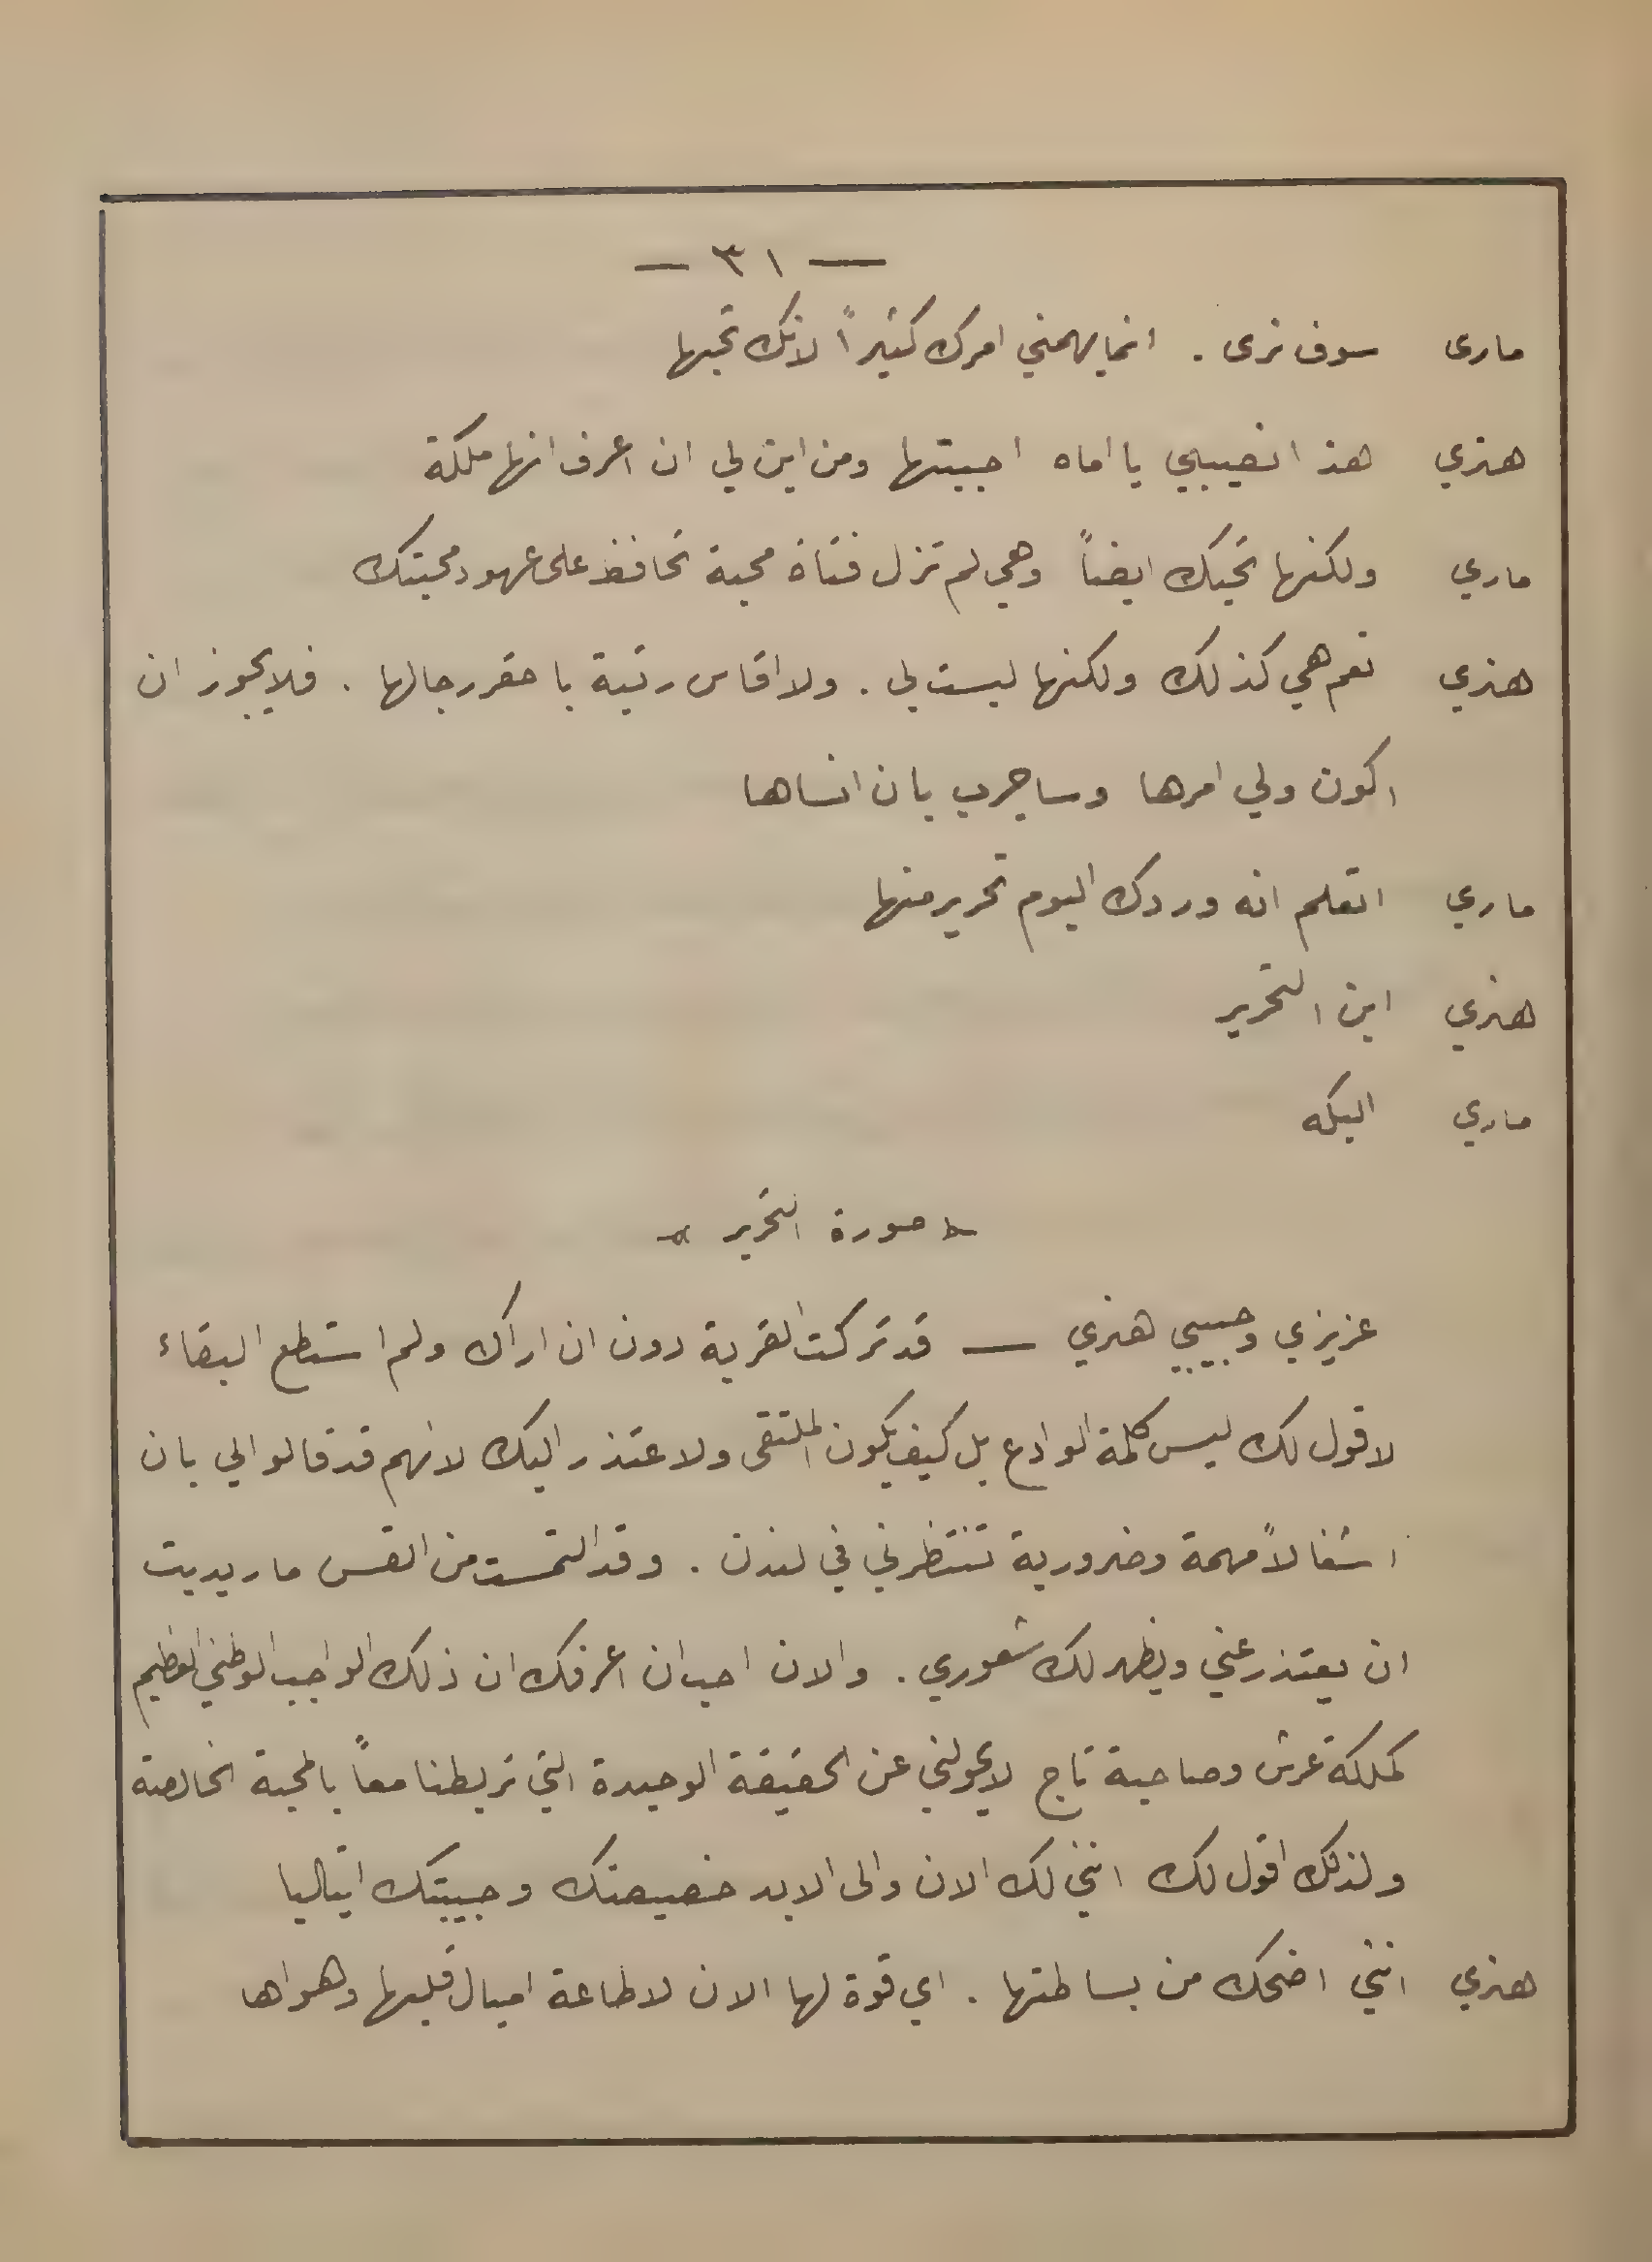 — ٣١ —
مارى سوف نرى . انما يهمني امرك كثيراً لانك تحبها
هنري هذا نصيبي يا اماه احببتها ومن اين لي ان اعرف انها ملكة
ماري ولكنها تحبك ايضاً وهي لم تزل فتاة محبة تحافظ على عهود محبتك
هنري نعم هي كذلك ولكنها ليست لي . ولا اقاس رتبة باحقر رجالها . فلا يجوز ان
اكون ولي امرها وساجرب بان انساها
ماري اتعلم انه وردك اليوم تحرير منها
هنري اين التحرير
ماري اليكه
صورة التحرير
عزيزي وحبيبي هنري — قد تركت القرية دون ان اراك ولم استطع البقاء
لاقول لك ليس كلمة الوادع بل كيف يكون الملتقى ولاعتذر اليك لانهم قد قالوا لي بان
اشغالاً مهمة وضرورية تنتظرني في لندن . وقد التمست من القس ماريديت
ان يعتذر عني ويظهر لك شعوري . والان احب ان اعرفك ان ذلك الواجب الوطني العظيم
كملكة عرش وصاحبة تاج لا يحولني عن الحقيقة الوحيدة التي تربطنا معاً بالمحبة الخالصة
ولذلك اقول لك انني لك الان والى الابد خصيصتك وحبيبتك ايتاليا
هنري انني اضحك من بساطتها . اي قوة لها الان لاطاعة اميال قلبها وهواها